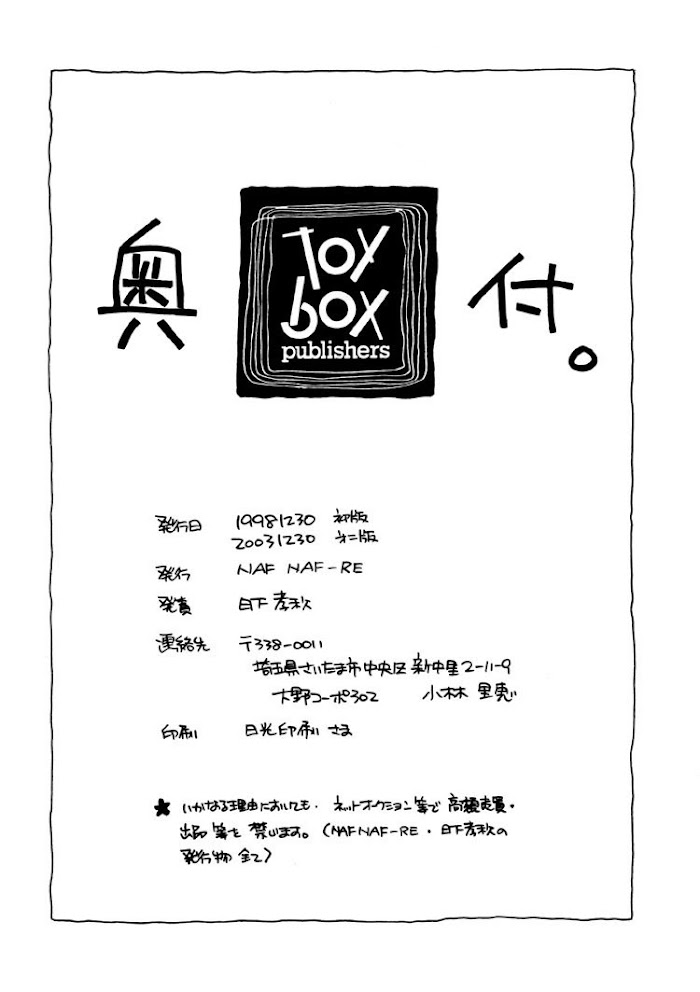 奥付。
Toy
box
publishers
発行日 19981230 初版
20031230 第二版
発行 NAF NAF-RE
発責 日下孝秋
連絡先 〒338-0011
埼玉県さいたま市中央区新中里2-11-9
大野コーポ302 小林 里恵
印刷 日光印刷さま
★いかなる理由においても、ネットオークション等で高額売買・
出品等を禁じます。(NAF NAF-RE・日下孝秋の
発行物全て)